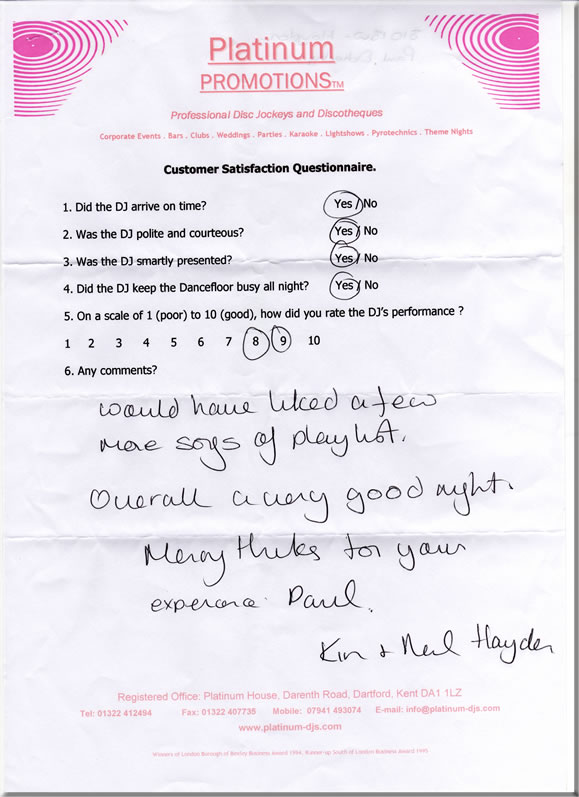 Platinum
PROMOTIONS™
Professional Disc Jockeys and Discotheques
Corporate Events . Bars . Clubs . Weddings . Parties . Karaoke . Lightshows . Pyrotechnics . Theme Nights
Customer Satisfaction Questionnaire.
1. Did the DJ arrive on time? Yes / No
2. Was the DJ polite and courteous? Yes / No
3. Was the DJ smartly presented? Yes / No
4. Did the DJ keep the Dancefloor busy all night? Yes / No
5. On a scale of 1 (poor) to 10 (good), how did you rate the DJ's performance ?
1 2 3 4 5 6 7 8 9 10
6. Any comments?
would have liked a few
more songs of playlist.
Overall a very good night.
Many thanks for your
experience Paul.
Kim + Neil Hayden
Registered Office: Platinum House, Darenth Road, Dartford, Kent DA1 1LZ
Tel: 01322 412494 Fax: 01322 407735 Mobile: 07941 493074 E-mail: info@platinum-djs.com
www.platinum-djs.com
Winners of London Borough of Bexley Business Award 1994, Runner-up South of London Business Award 1995